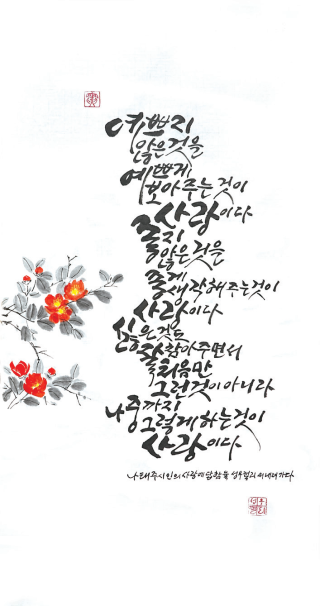 예쁘지
않은것을
예쁘게
보아주는것이
사랑이다
좋지
않은것을
좋게
생각해주는것이
사랑이다
싫은것도
잘참아주면서
처음만
그런것이아니라
나중까지
그렇게하는것이
사랑이다
나태주시인의 사랑에 답함을